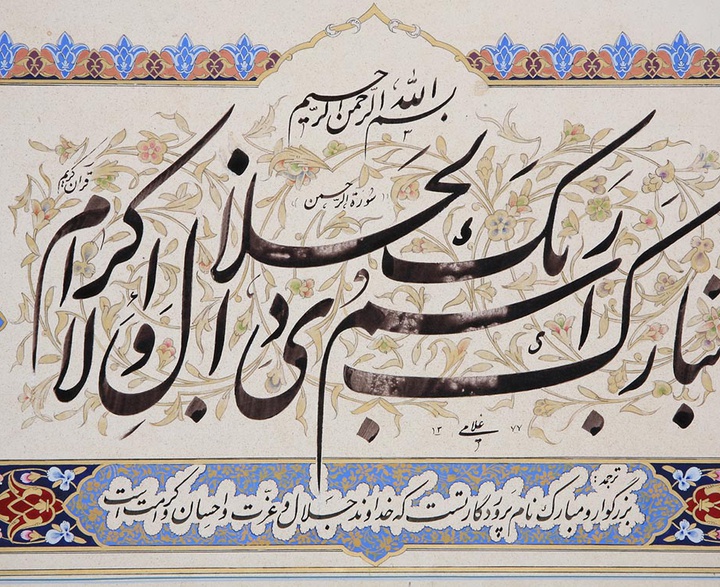 بسم الله الرحمن الرحیم
قرآن کریم
سورة الرحمن
تبارک اسم ربک ذی الجلال والاکرام
غلامی ۱۳۷۷
ترجمه:
بزرگوار و مبارک نام پروردگار تست که خداوند جلال و عزت و احسان و کرامت است